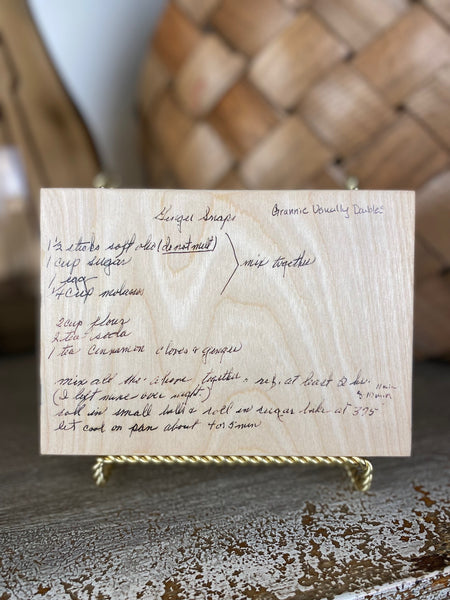 Ginger Snaps
Grannie Usually Doubles
1 1/2 sticks soft oleo (do not melt)
1 cup sugar
mix together
1 egg
1/4 cup molasses
2 cup flour
2 tea soda
1 tea cinnamon cloves & ginger
mix all the above together & ref. at least 2 hr.
(I left mine over night.)
roll in small balls & roll in sugar bake at 375
let cool on pan about 4 or 5 min